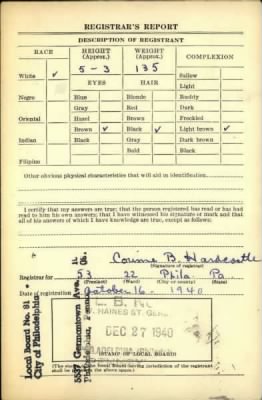 REGISTRAR'S REPORT
DESCRIPTION OF REGISTRANT
RACE HEIGHT (Approx.) WEIGHT (Approx.) COMPLEXION
5-3 135
White ✓ Sallow
EYES HAIR Light
Negro Blue Blonde Ruddy
Gray Red Dark
Oriental Hazel Brown Freckled
Brown ✓ Black ✓ Light brown ✓
Indian Black Gray Dark brown
Bald Black
Filipino
Other obvious physical characteristics that will aid in identification
I certify that my answers are true; that the person registered has read or has had
read to him his own answers; that I have witnessed his signature or mark and that
all of his answers of which I have knowledge are true, except as follows:
Corinne B. Hardcastle
(Signature of registrar)
Registrar for 53 22 Phila Pa.
(Precinct) (Ward) (City or county) (State)
Date of registration October 16 - 1940
Local Board No. 81
City of Philadelphia
5537 Germantown Ave.
L. B. NO
W. HAINES ST. GER
DEC 27 1940
PHILADELPHIA
(STAMP OF LOCAL BOARD)